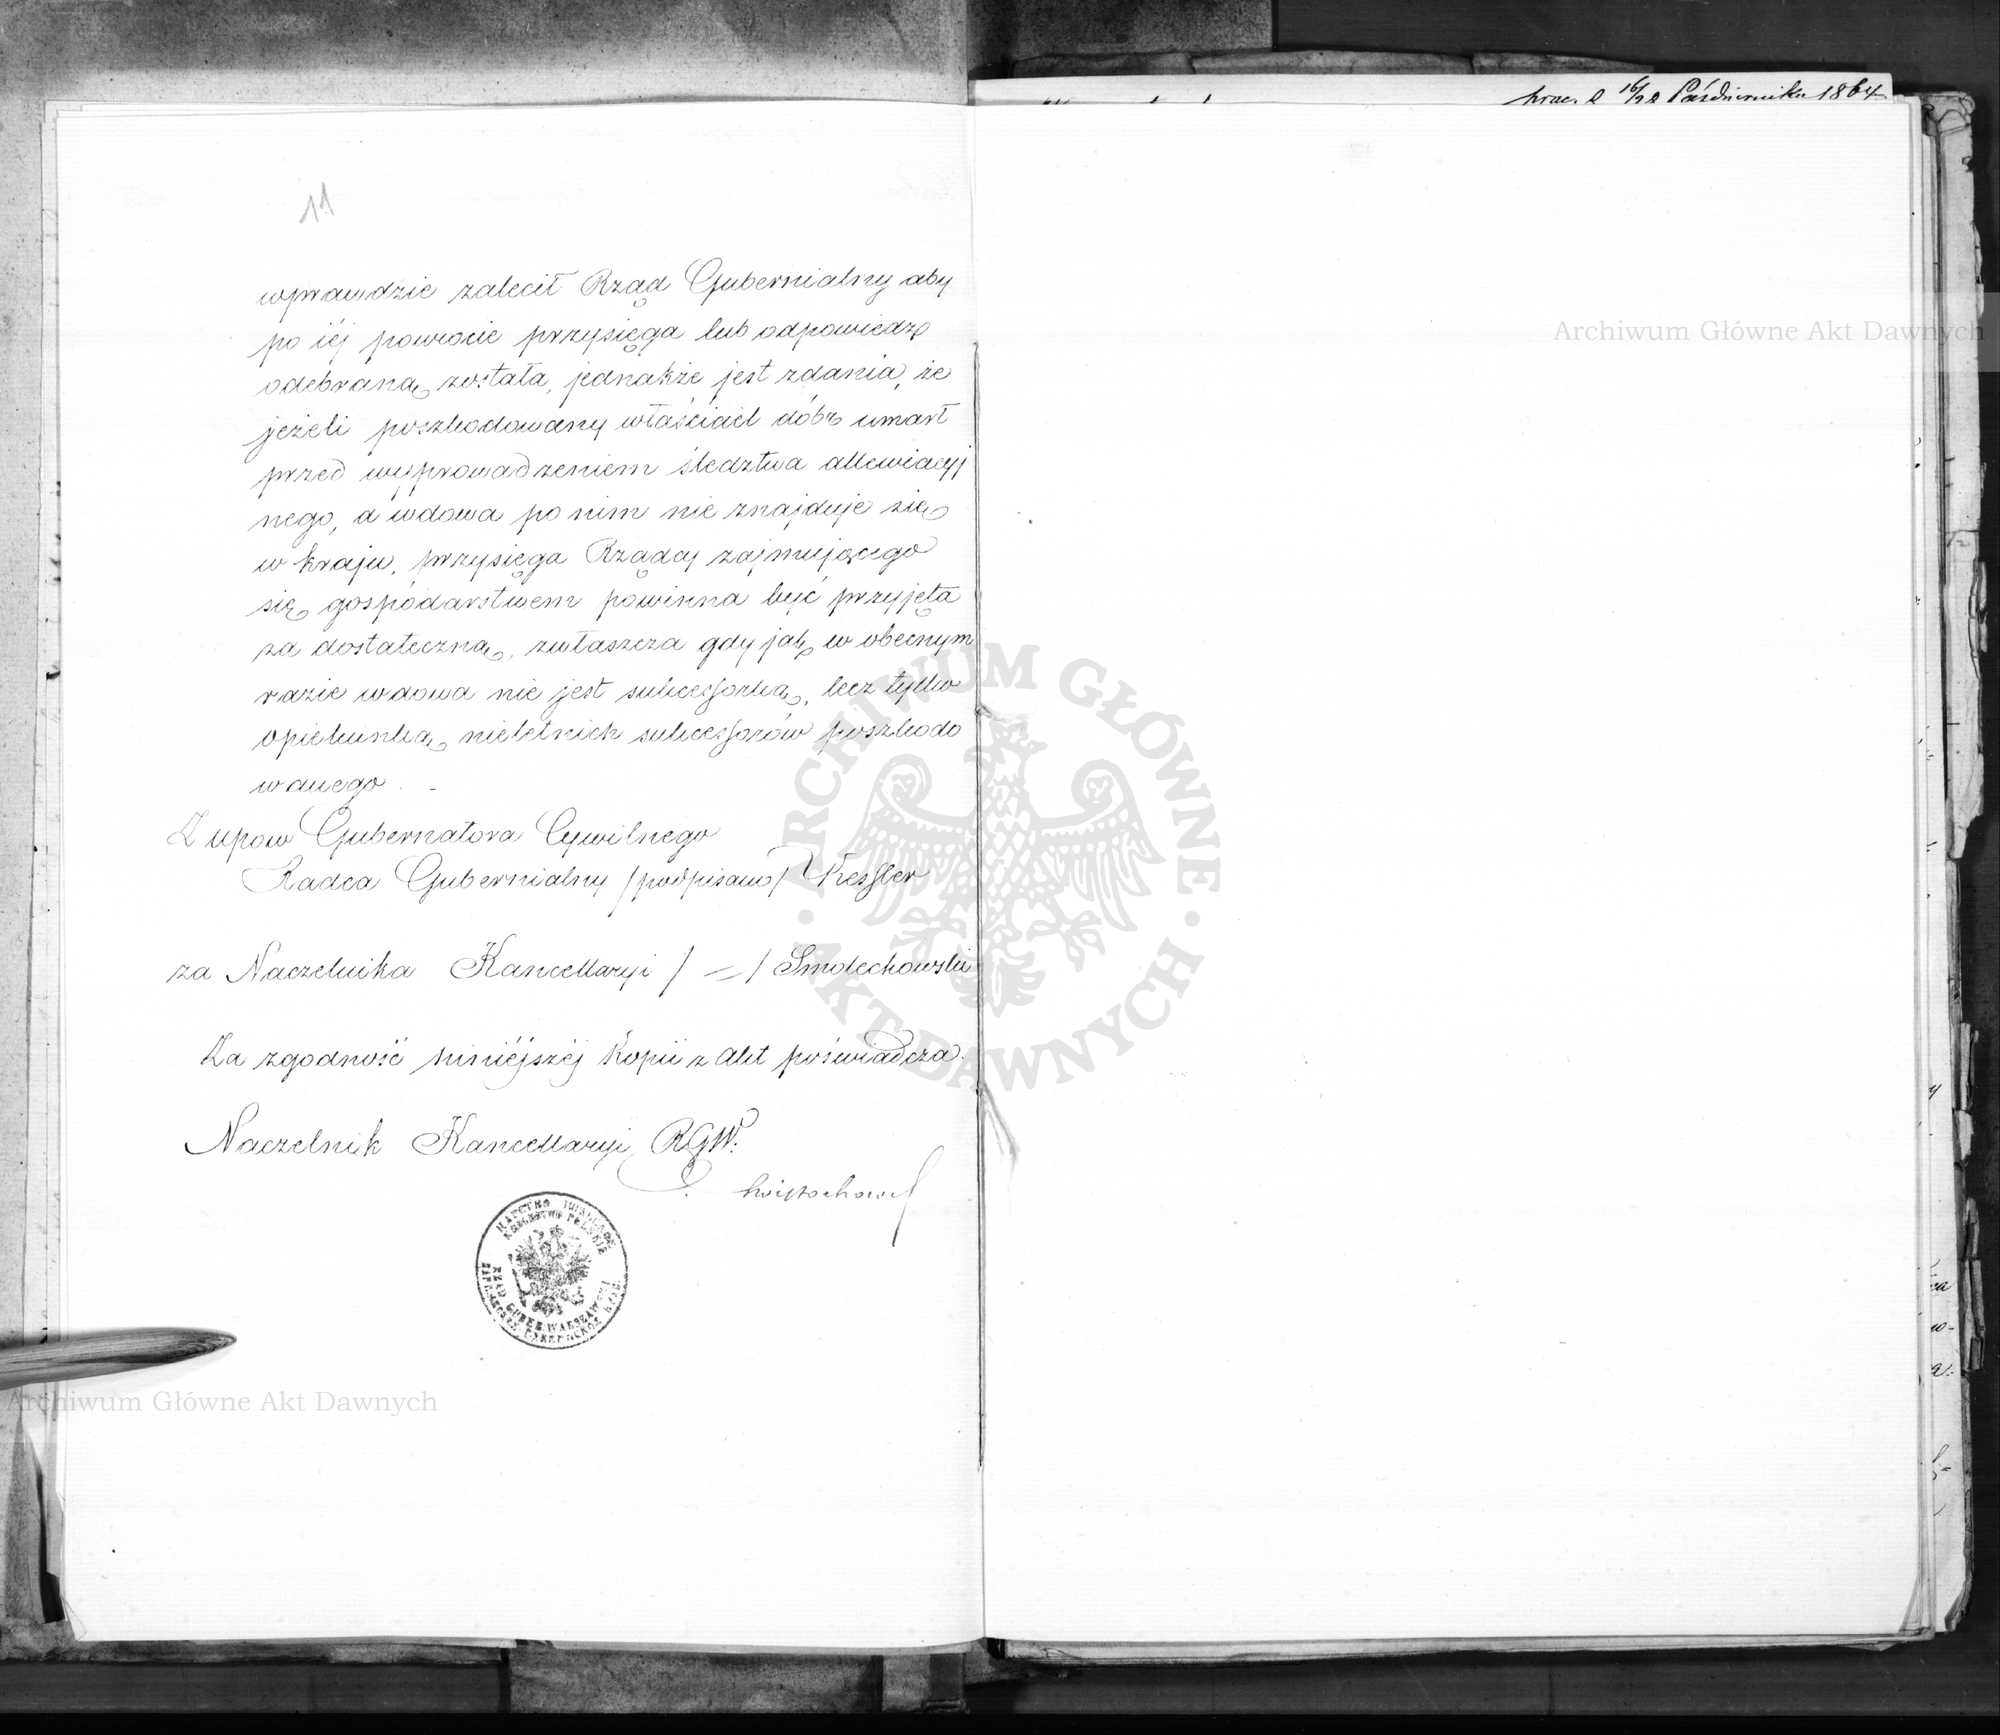 11
wprawdzie zalecił Rząd Gubernialny aby
po iéj powrocie przysięga lub odpowiedz
odebraną została, jednakże jest zdania, że
jeżeli poszkodowany właściciel dóbr umarł
przed wyprowadzeniem śledztwa allewiacyj
nego, a wdowa po nim nie znajduje się
w kraju, przysięga Rządcy zajmującego
się gospodarstwem powinna być przyjęta
za dostateczną, zwłaszcza gdy jak w obecnym
razie wdowa nie jest sukcessorką, lecz tylko
opiekunką nieletnich sukcessorów poszkodo
wanego. -
Z upow Gubernatora Cywilnego
Radca Gubernialny /podpisano/ Kessler
za Naczelnika Kancellaryi / = / Smolechowski
Za zgodność niniéjszéj Kopii z Akt poświadcza
Naczelnik Kancellaryi RGW.
KRÓLESTWO POLSKIE
RZĄD GUBER. WARSZAWSKI
16/28 Października 1864
Archiwum Główne Akt Dawnych
Archiwum Główne Akt Dawnych
ARCHIWUM GŁÓWNE
AKT DAWNYCH